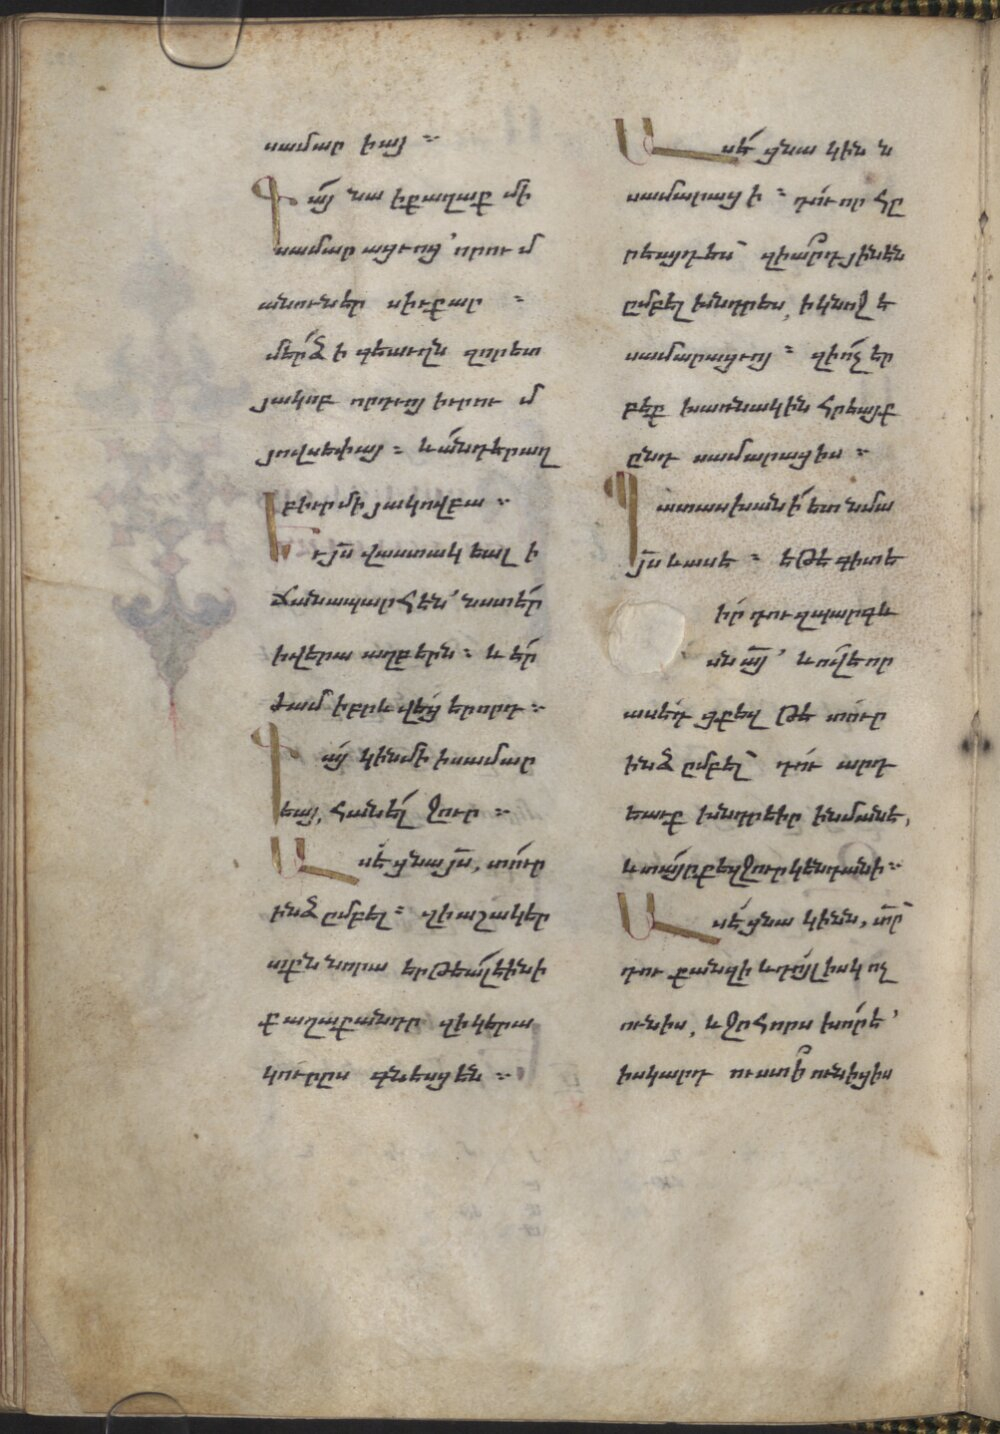 սամար իայ ։
Գայ նա իքաղաք մի
սամար ացւոց՝ որում
անունէր սիւքար ։
մերձ ի գեաւղն զորետ
յակոբ որդւոյ իւրում
յովսեփայ ։ և անդէրաղ
բիւրմի յակովբա ։
Իւ յս վաստակ եալ ի
ճանապարհէն՝ նստէր
իվերա աղբերն ։ և էր
ժամ իբրև վեց երորդ ։
Գայ կինմի իսամար
եայ, հանել ջուր ։
Ասէ ցնա յս, տուր
ինձ ըմբել ։ զի աշակեր
տքն նորա երթեալէինի
քաղաքանդր զիկերա
կուրըս գնեսցեն ։
Ասէ ցնա կին ն
սամարացի ։ դու որ հը
րեայդես՝ զիարդ յինէն
ըմբել խնդրես, իկնոջ է
սամարացւոյ ։ զիոչ եր
բեք խառնակին հրեայք
ընդ սամարացիս ։
Պատասխանի ետ նմա
յս և ասէ ։ եթէ գիտէ
իր դու զպարգև
սն այ՝ և ովէ որ
ասէդ ցքեզ թէ տուր
ինձ ըմբել՝ դու արդ
եաւք խնդրէիր ինմանէ,
և տայրքեզջուրկենդանի ։
Ասէ ցնա կինն, տր՝
դու քանզի և դոյլ իսկ ոչ
ունիս, և ջրհորս խորէ՝
իսկարդ ուստի ունիցիս